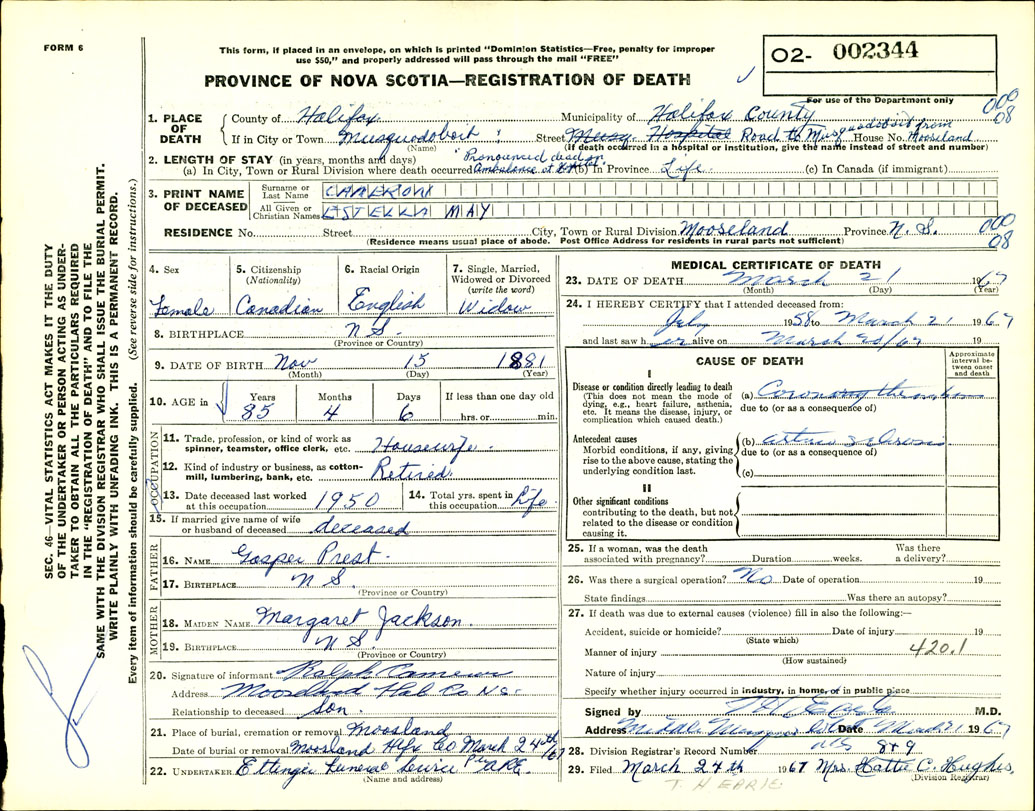 FORM 6
This form, if placed in an envelope, on which is printed "Dominion Statistics—Free, penalty for improper
use $50," and properly addressed will pass through the mail "FREE"
PROVINCE OF NOVA SCOTIA—REGISTRATION OF DEATH
O2- 002344
For use of the Department only
000
08
SEC. 46—VITAL STATISTICS ACT MAKES IT THE DUTY
OF THE UNDERTAKER OR PERSON ACTING AS UNDER-
TAKER TO OBTAIN ALL THE PARTICULARS REQUIRED
IN THE "REGISTRATION OF DEATH" AND TO FILE THE
SAME WITH THE DIVISION REGISTRAR WHO SHALL ISSUE THE BURIAL PERMIT.
WRITE PLAINLY WITH UNFADING INK. THIS IS A PERMANENT RECORD.
Every item of information should be carefully supplied. (See reverse side for instructions.)
1. PLACE OF DEATH
County of Halifax Municipality of Halifax County
If in City or Town Musquodoboit Street Hospital Road to Musquodoboit from House No. Mooseland
(Name) (If death occurred in a hospital or institution, give the name instead of street and number)
2. LENGTH OF STAY (in years, months and days) Pronounced dead on
(a) In City, Town or Rural Division where death occurred Ambulance at (b) In Province Life (c) In Canada (if immigrant)
3. PRINT NAME OF DECEASED
Surname or Last Name CAMERON
All Given or Christian Names ESTELLA MAY
RESIDENCE No. Street City, Town or Rural Division Mooseland Province N. S.
000
08
(Residence means usual place of abode. Post Office Address for residents in rural parts not sufficient)
4. Sex
Female
5. Citizenship
(Nationality)
Canadian
6. Racial Origin
English
7. Single, Married,
Widowed or Divorced
(write the word)
Widow
8. BIRTHPLACE N S.
(Province or Country)
9. DATE OF BIRTH Nov 15 1881
(Month) (Day) (Year)
10. AGE in Years Months Days If less than one day old
85 4 6 hrs. or min.
OCCUPATION
11. Trade, profession, or kind of work as
spinner, teamster, office clerk, etc. Housewife
12. Kind of industry or business, as cotton-
mill, lumbering, bank, etc. Retired
13. Date deceased last worked
at this occupation 1950
14. Total yrs. spent in
this occupation Life
15. If married give name of wife
or husband of deceased deceased
FATHER
16. NAME Gosper Prest.
17. BIRTHPLACE N S.
(Province or Country)
MOTHER
18. MAIDEN NAME Margaret Jackson.
19. BIRTHPLACE N S.
(Province or Country)
20. Signature of informant Ralph Cameron
Address Mooseland Hal Co NS.
Relationship to deceased Son.
21. Place of burial, cremation or removal Moosland
Date of burial or removal Moosland Hfx Co March 24th/67
22. UNDERTAKER Ettinger Funeral Service Per ARE.
(Name and address)
MEDICAL CERTIFICATE OF DEATH
23. DATE OF DEATH March 21 1967
(Month) (Day) (Year)
24. I HEREBY CERTIFY that I attended deceased from:
July 1958 to March 21 1967
and last saw her alive on March 20/67 19
CAUSE OF DEATH
Approximate
interval be-
tween onset
and death
I
Disease or condition directly leading to death
(This does not mean the mode of
dying, e.g., heart failure, asthenia,
etc. It means the disease, injury, or
complication which caused death.)
(a) Coronary thrombosis
due to (or as a consequence of)
Antecedent causes
Morbid conditions, if any, giving
rise to the above cause, stating the
underlying condition last.
(b)
due to (or as a consequence of)
(c)
II
Other significant conditions
contributing to the death, but not
related to the disease or condition
causing it.
25. If a woman, was the death
associated with pregnancy? Duration weeks. Was there
a delivery?
26. Was there a surgical operation? No Date of operation 19
State findings Was there an autopsy?
27. If death was due to external causes (violence) fill in also the following:—
Accident, suicide or homicide? Date of injury 19
(State which)
Manner of injury 420.1
(How sustained)
Nature of injury
Specify whether injury occurred in industry, in home, or in public place
Signed by T H Earle M.D.
Address Middle Musquodoboit Date March 21 1967
28. Division Registrar's Record Number 849
29. Filed March 24th 1967 Mrs. Hattie C. Hughes.
(Division Registrar)
T. H EARLE